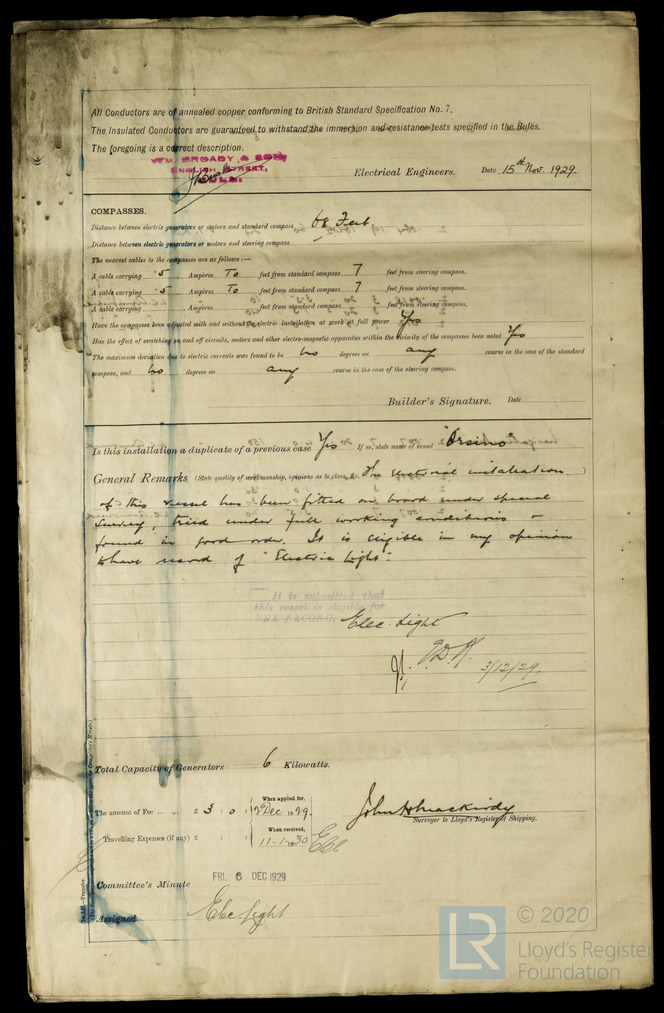 All Conductors are of annealed copper conforming to British Standard Specification No. 7.
The Insulated Conductors are guaranteed to withstand the immersion and resistance tests specified in the Rules.
The foregoing is a correct description.
WM. BROADY & SON,
ENGLISH STREET,
HULL.
Electrical Engineers. Date 15th Nov. 1929.
COMPASSES.
Distance between electric generators or motors and standard compass 68 Feet
Distance between electric generators or motors and steering compass
The nearest cables to the compasses are as follows:—
A cable carrying .5 Ampères To feet from standard compass 7 feet from steering compass.
A cable carrying .5 Ampères To feet from standard compass 7 feet from steering compass.
A cable carrying Ampères feet from standard compass feet from steering compass.
Have the compasses been adjusted with and without the electric installation at work at full power Yes
Has the effect of switching on and off circuits, motors and other electro-magnetic apparatus within the vicinity of the compasses been noted Yes
The maximum deviation due to electric currents was found to be no degrees on any course in the case of the standard
compass, and no degrees on any course in the case of the steering compass.
Builder's Signature. Date
Is this installation a duplicate of a previous case Yes If so, state name of vessel "Orsino"
General Remarks (State quality of workmanship, opinions as to class, &c. The Electrical installation )
of this vessel has been fitted on board under special
survey, tried under full working conditions &
found in good order. It is eligible in my opinion
to have record of "Electric Light".
It is submitted that
this vessel is eligible for
THE RECORD.
Elec. Light
3/12/29.
Total Capacity of Generators 6 Kilowatts.
The amount of Fee ... .. £ 3 : 0 :
When applied for,
2nd Dec 1929.
Travelling Expenses (if any) £ : :
When received,
11-1-1930
Surveyor to Lloyd's Register of Shipping.
Committee's Minute FRI. 6 DEC 1929
Assigned Elec Light
LR
© 2020
Lloyd's Register
Foundation